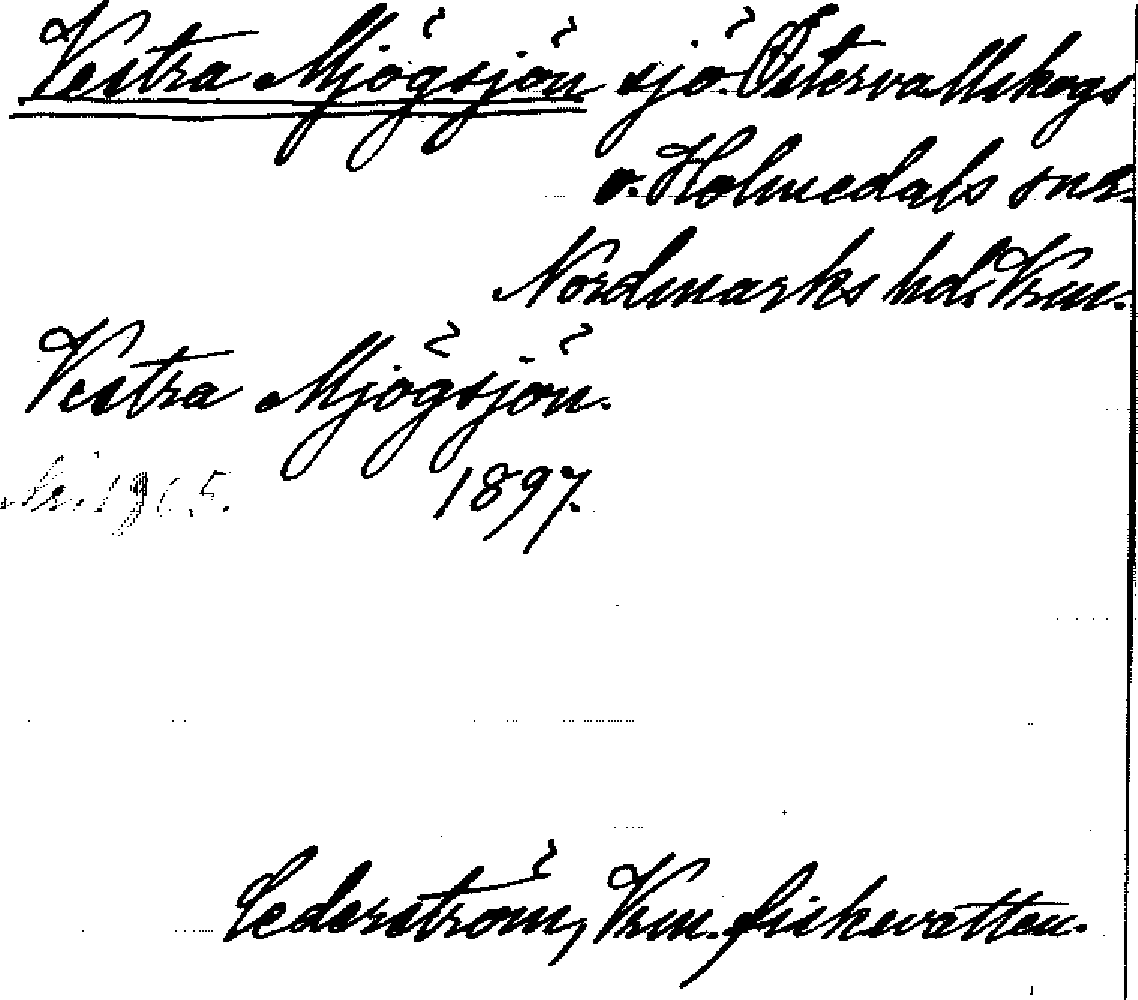 Vestra Mjögsjön sjö. Östervallskogs
o. Holmedals snr.
Nordmarks hd. Vrm.
Vestra Mjögsjön.
1897.
Cederström, Vrm. fiskevatten.